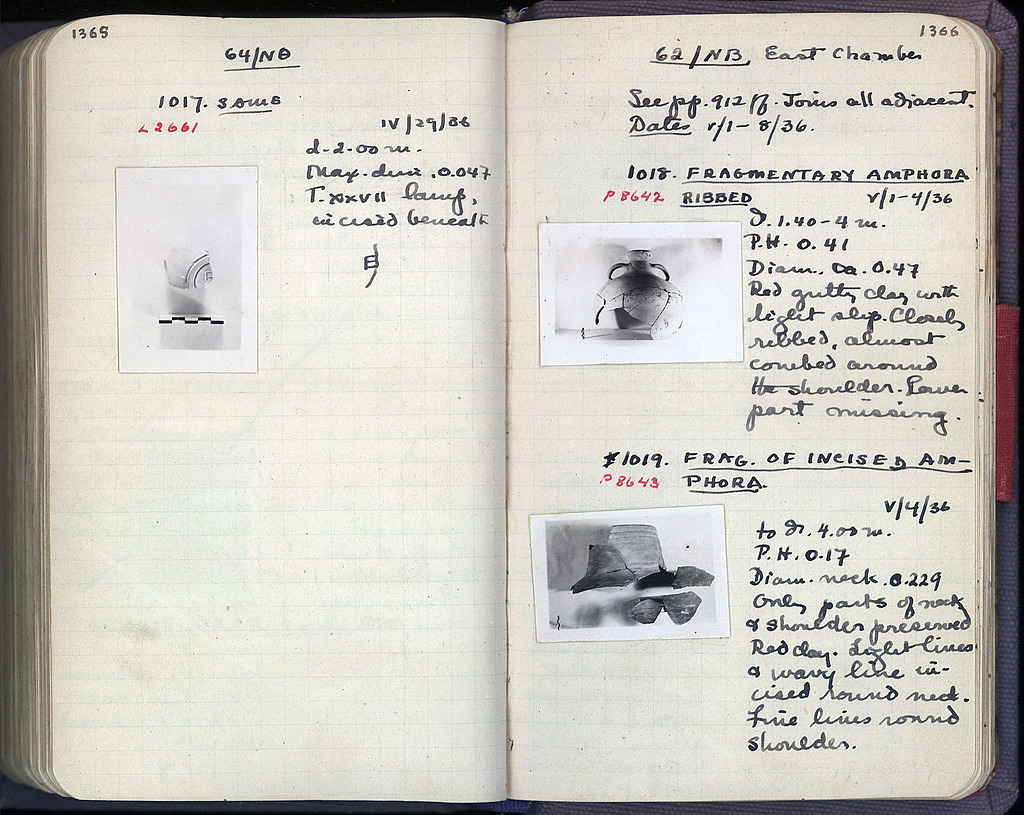 1365
64/NΘ
1017. SAME
L 2661
IV/29/36
d. 2.00 m.
Max. dim. 0.047
T. XXVII lamp,
incised beneath
1366
62/NB, East Chamber
See pp. 912 ff. Joins all adjacent.
Dates V/1-8/36.
1018. FRAGMENTARY AMPHORA
P 8642 RIBBED
V/1-4/36
D. 1.40-4 m.
P.H. 0.41
Diam. ca. 0.47
Red gritty clay with
light slip. Closely
ribbed, almost
combed around
the shoulder. Lower
part missing.
1019. FRAG. OF INCISED AM-
P 8643 PHORA.
V/4/36
to D. 4.00 m.
P.H. 0.17
Diam. neck 0.229
Only parts of neck
& shoulder preserved
Red clay. Light lines
& wavy line in-
cised round neck.
Fine lines round
shoulder.